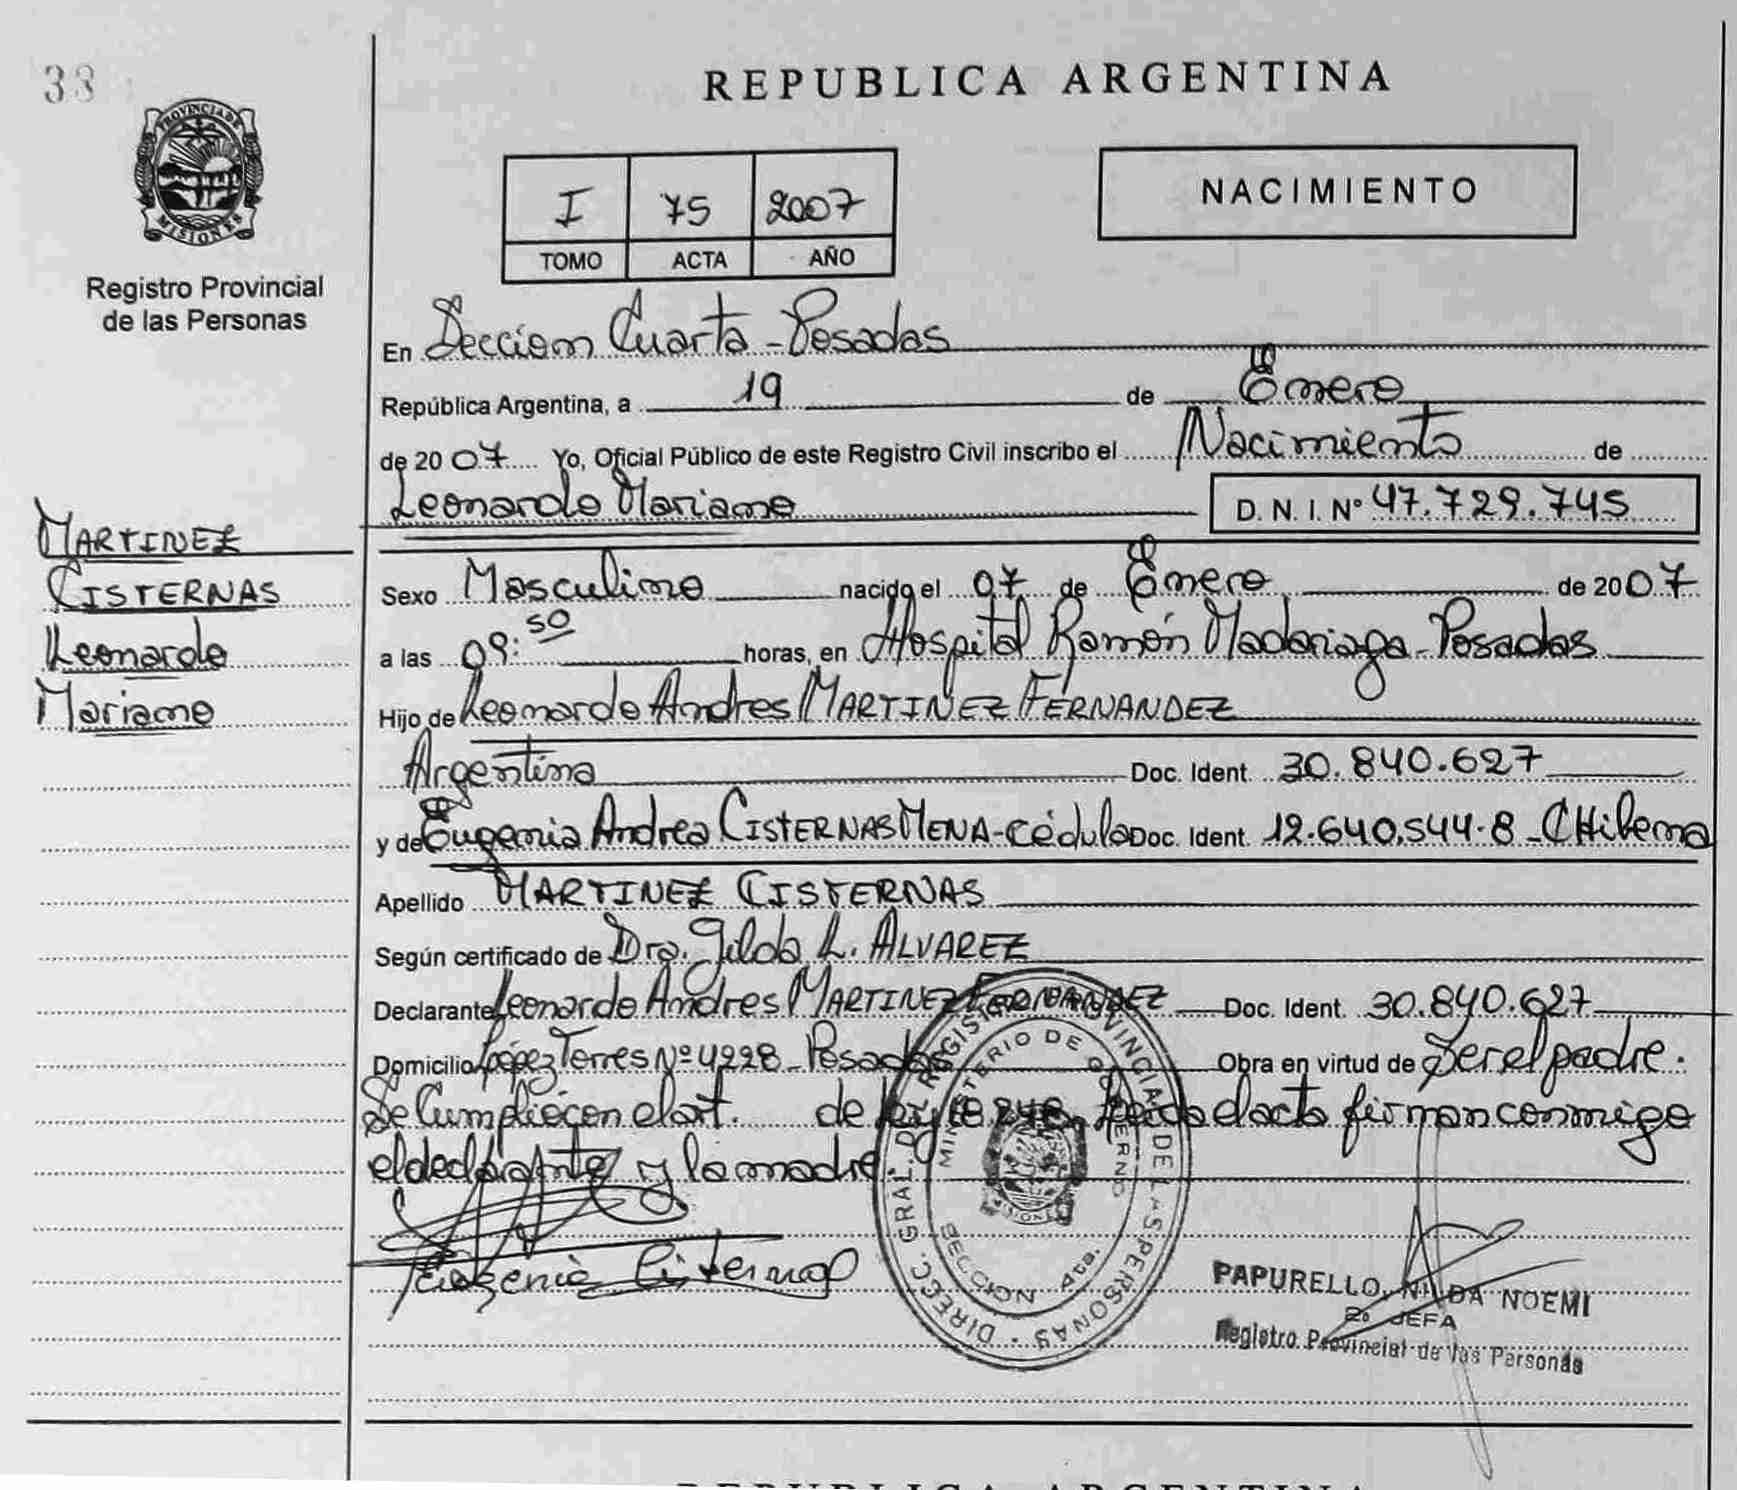 38
REPUBLICA ARGENTINA
PROVINCIA DE
MISIONES
Registro Provincial
de las Personas
I 75 2007
TOMO ACTA AÑO
NACIMIENTO
En Sección Cuarta - Posadas
República Argentina, a 19 de Enero
de 2007 Yo, Oficial Público de este Registro Civil inscribo el Nacimiento de
Leonardo Mariano D. N. I. Nº 47.729.745
MARTINEZ
CISTERNAS
Leonardo
Mariano
Sexo Masculino nacido el 07 de Enero de 2007
a las 09:50 horas, en Hospital Ramón Madariaga - Posadas
Hijo de Leonardo Andres MARTINEZ FERNANDEZ
Argentina Doc. Ident. 30.840.627
y de Eugenia Andrea CISTERNAS MENA - Cédula Doc. Ident. 12.640.544-8 - CHilena
Apellido MARTINEZ CISTERNAS
Según certificado de Dra. Gilda L. ALVAREZ
Declarante Leonardo Andres MARTINEZ FERNANDEZ Doc. Ident. 30.840.627
Domicilio López Torres Nº 4228 - Posadas Obra en virtud de Ser el padre.
Se Cumplió con el art. de ley 18.248. Leida el acta firman conmigo
el declarante y la madre.
Eugenia Cisternas
DIRECC. GRAL. DEL REGISTRO PROVINCIAL DE LAS PERSONAS
MINISTERIO DE GOBIERNO
SECCION 4ta.
MISIONES
PAPURELLO, NILDA NOEMI
2º JEFA
Registro Provincial de las Personas
REPUBLICA ARGENTINA